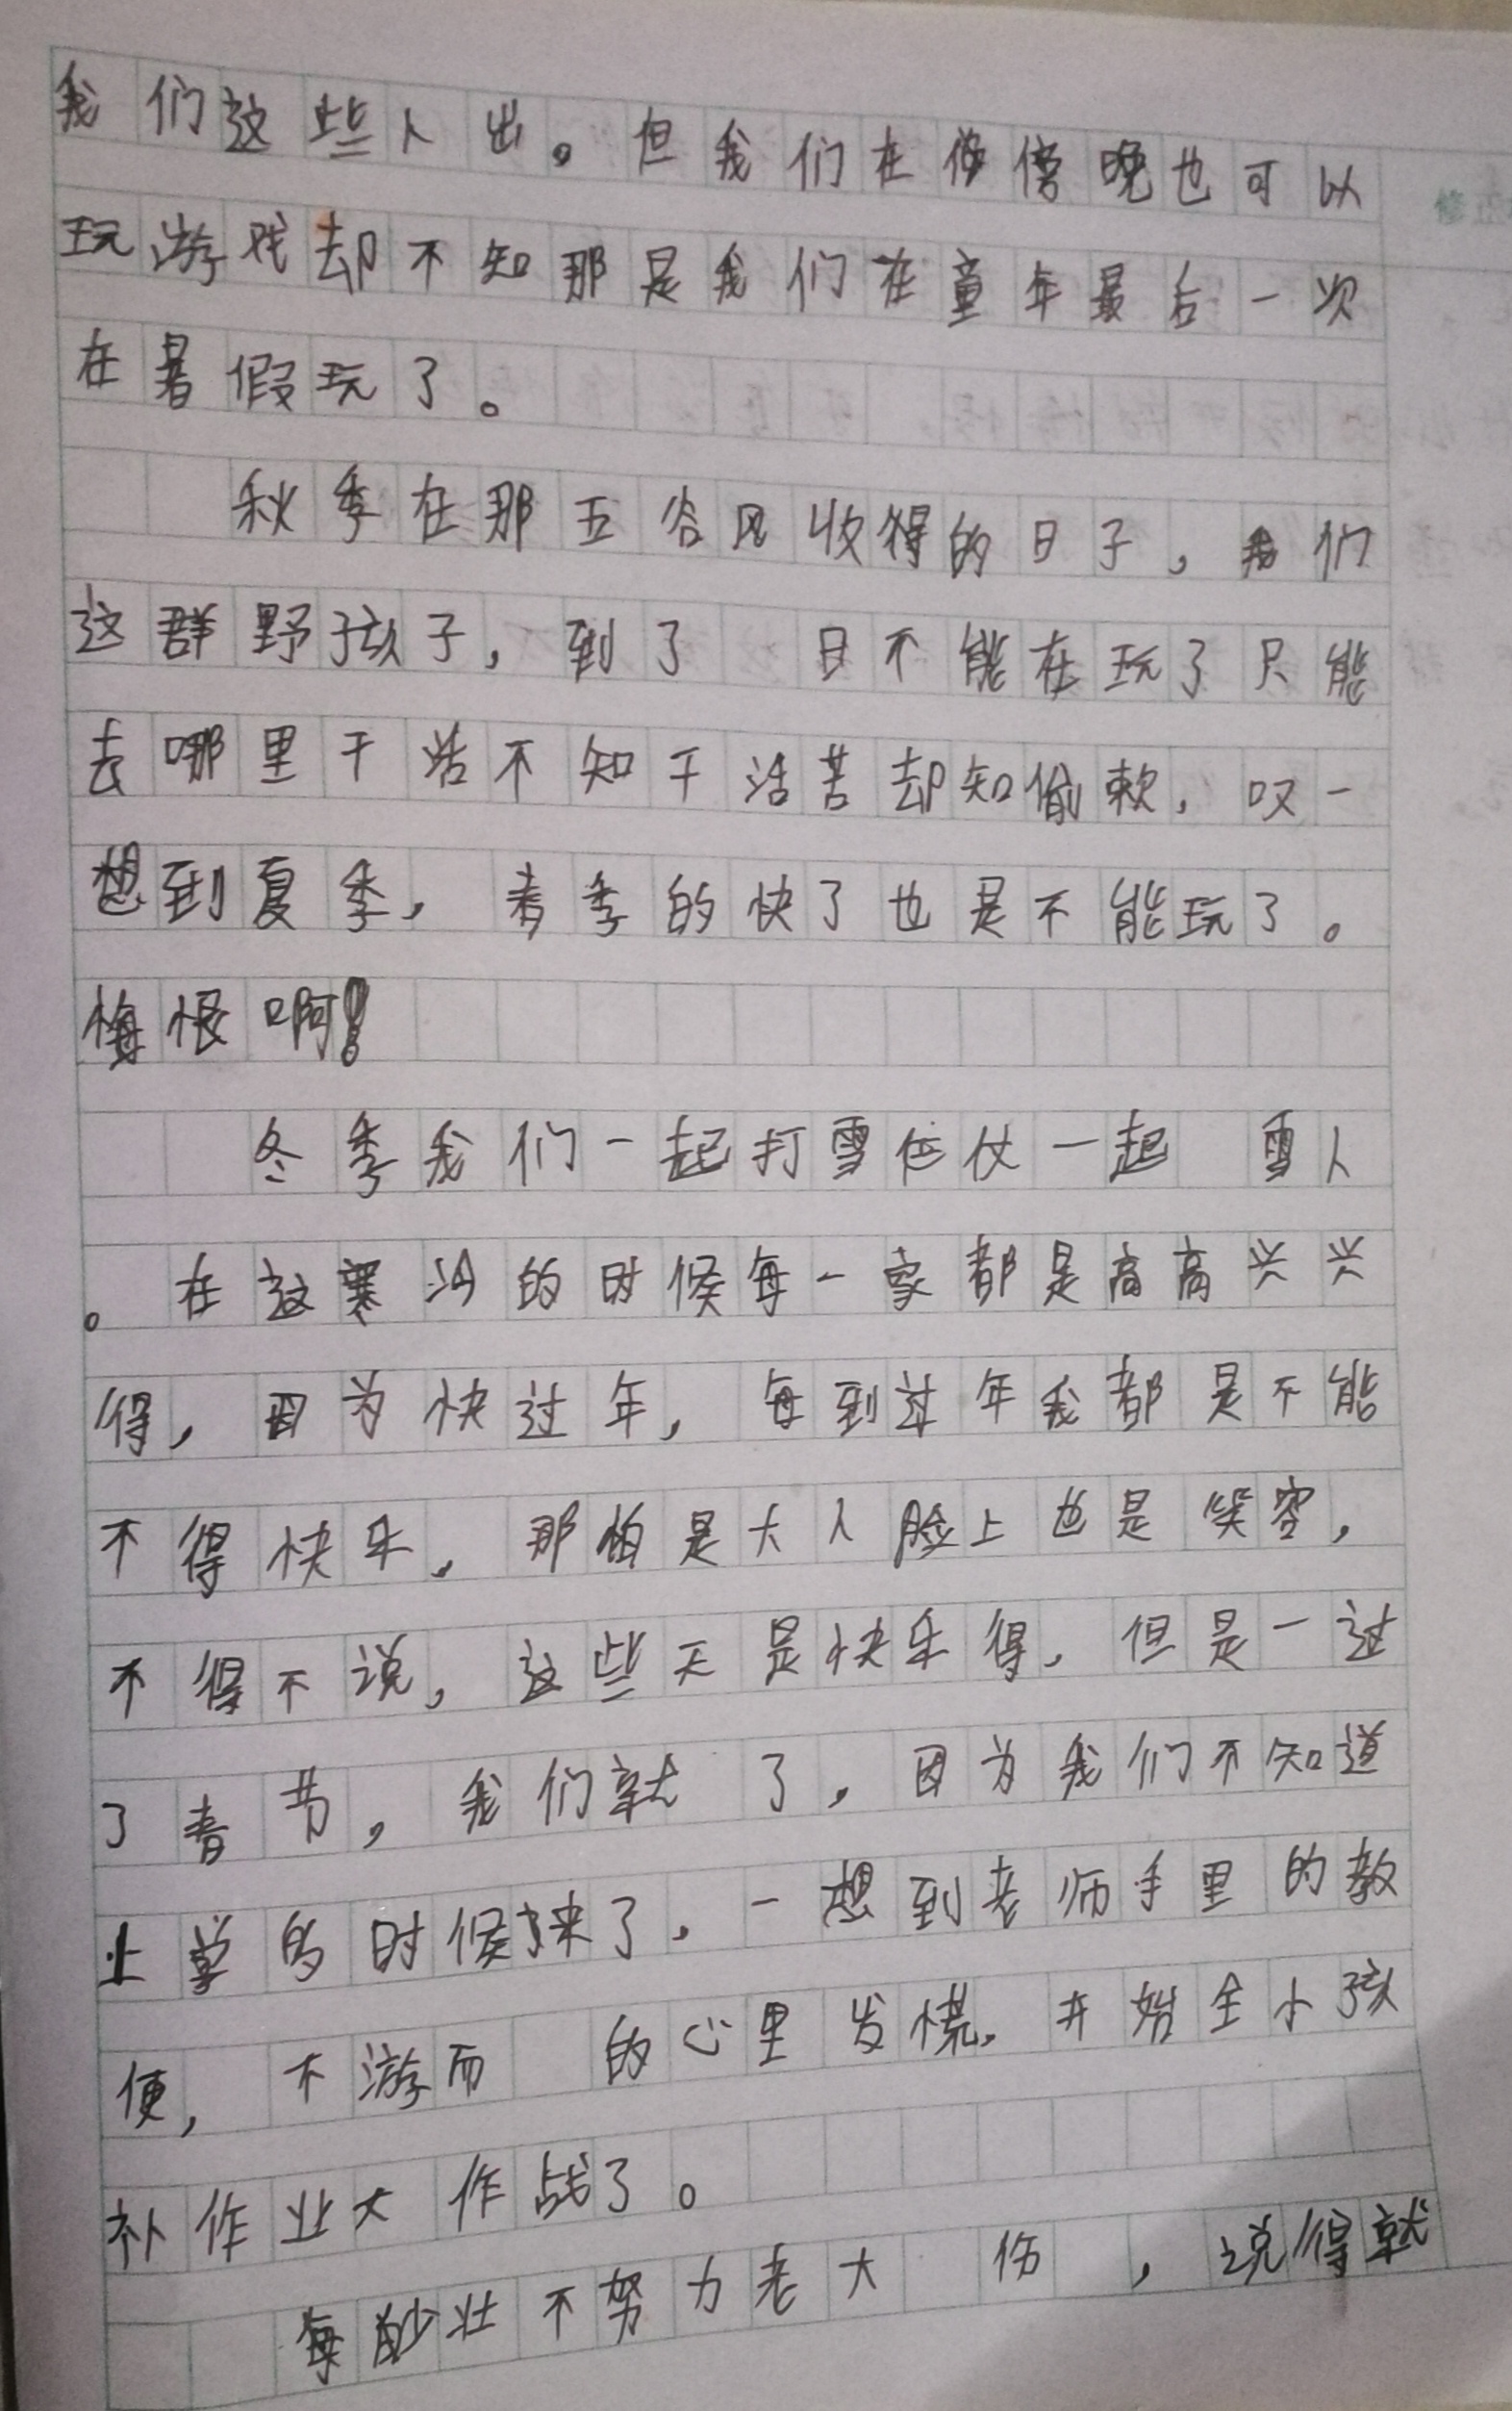 我们这些人出。但我们在傍晚也可以
修改
玩游戏却不知那是我们在童年最后一次
在暑假玩了。
秋季在那五谷风收得的日子，我们
这群野孩子，到了 日不能在玩了只能
去哪里干活不知干活苦却知偷懒，叹一
想到夏季，春季的快了也是不能玩了。
悔恨啊！
冬季我们一起打雪仗一起 雪人
。在这寒冷的时候每一家都是高高兴兴
得，因为快过年，每到过年我都是不能
不得快乐，那怕是大人脸上也是笑容，
不得不说，这些天是快乐得，但是一过
了春节，我们就 了，因为我们不知道
上学的时候来了，一想到老师手里的教
便，不游而 的心里发慌，开始全小孩
补作业大作战了。
每 壮不努力老大 伤 ，说得就